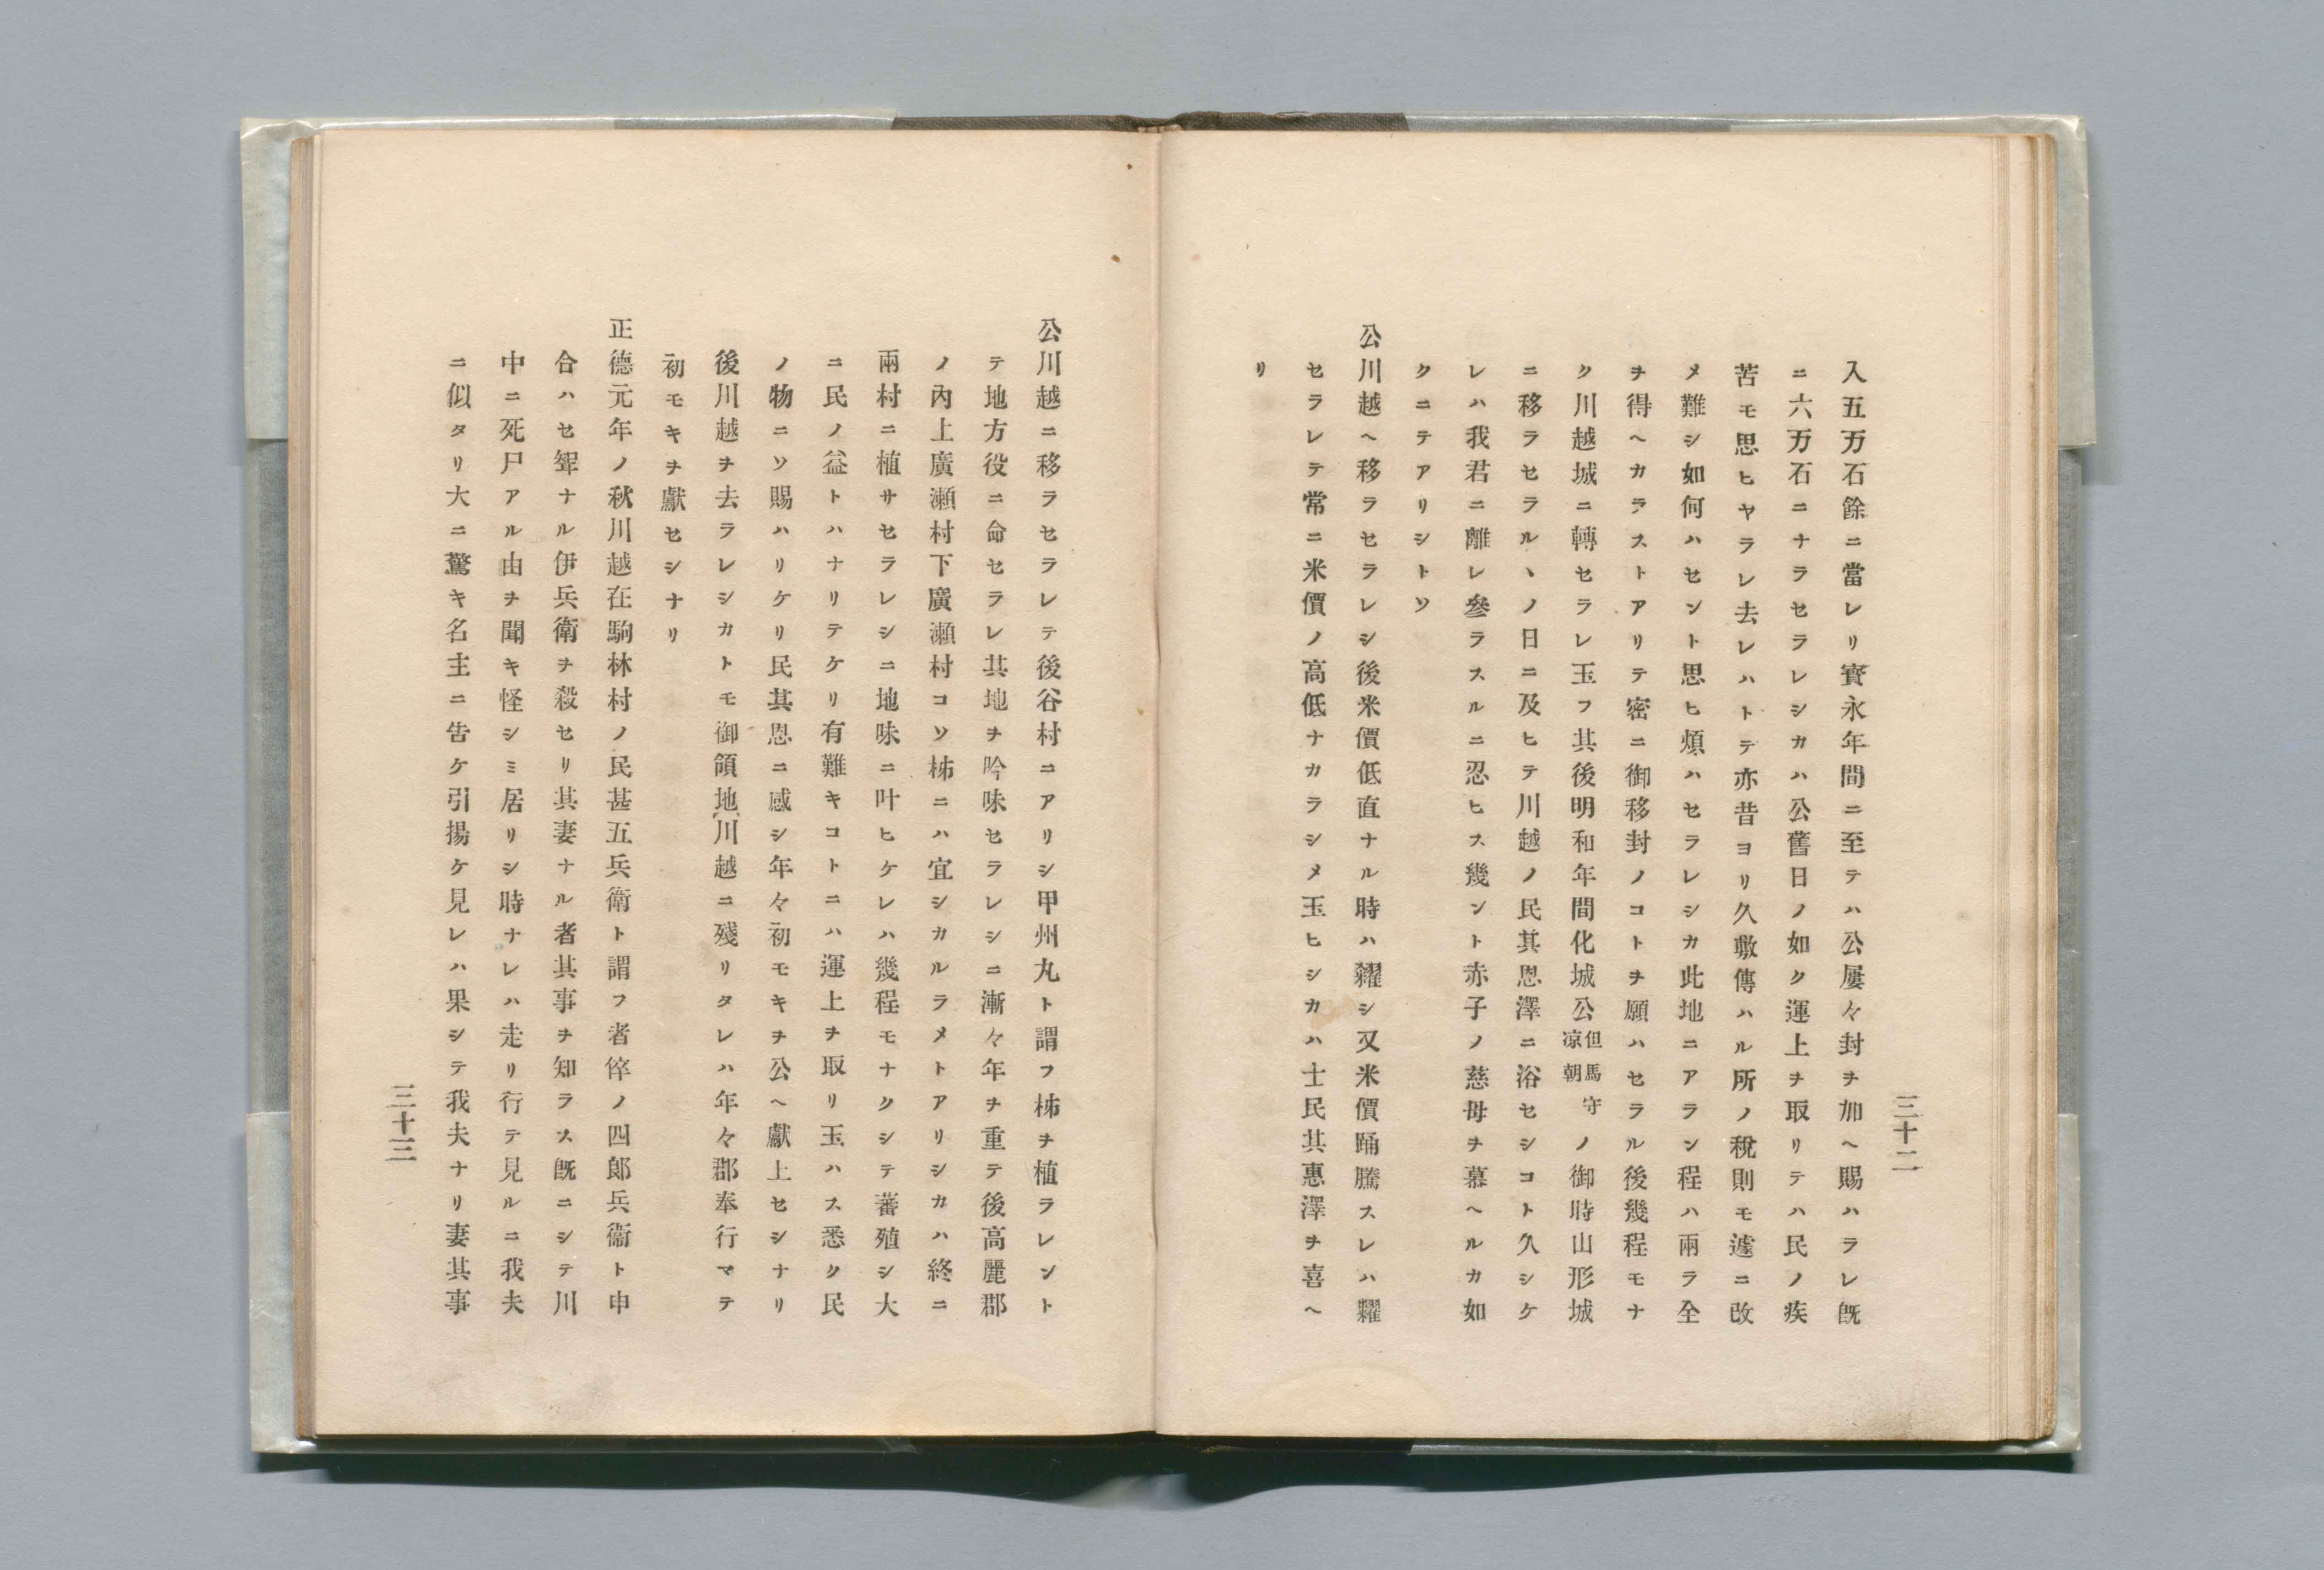 入五万石餘ニ當レリ寳永年間ニ至テハ公屢々封ヲ加ヘ賜ハラレ既
ニ六万石ニナラセラレシカハ公舊日ノ如ク運上ヲ取リテハ民ノ疾
苦モ思ヒヤラレ去レハトテ亦昔ヨリ久敷傳ハル所ノ稅則モ遽ニ改
メ難シ如何ハセント思ヒ煩ハセラレシカ此地ニアラン程ハ兩ラ全
ヲ得ヘカラストアリテ密ニ御移封ノコトヲ願ハセラル後幾程モナ
ク川越城ニ轉セラレ玉フ其後明和年間化城公但馬守凉朝ノ御時山形城
ニ移ラセラルヽノ日ニ及ヒテ川越ノ民其恩澤ニ浴セシコト久シケ
レハ我君ニ離レ參ラスルニ忍ヒス幾ント赤子ノ慈母ヲ慕ヘルカ如
クニテアリシトソ
公川越ヘ移ラセラレシ後米價低直ナル時ハ糴シ又米價踊騰スレハ糶
セラレテ常ニ米價ノ高低ナカラシメ玉ヒシカハ士民其惠澤ヲ喜ヘ
リ
三十二
公川越ニ移ラセラレテ後谷村ニアリシ甲州丸ト謂フ柹ヲ植ラレント
テ地方役ニ命セラレ其地ヲ吟味セラレシニ漸々年ヲ重テ後高麗郡
ノ內上廣瀬村下廣瀬村コソ柹ニハ宜シカルラメトアリシカハ終ニ
兩村ニ植サセラレシニ地味ニ叶ヒケレハ幾程モナクシテ蕃殖シ大
ニ民ノ益トハナリテケリ有難キコトニハ運上ヲ取リ玉ハス悉ク民
ノ物ニソ賜ハリケリ民其恩ニ感シ年々初モキヲ公ヘ獻上セシナリ
後川越ヲ去ラレシカトモ御領地川越ニ殘リタレハ年々郡奉行マテ
初モキヲ獻セシナリ
正德元年ノ秋川越在駒林村ノ民甚五兵衛ト謂フ者倅ノ四郎兵衞ト申
合ハセ壻ナル伊兵衛ヲ殺セリ其妻ナル者其事ヲ知ラス既ニシテ川
中ニ死尸アル由ヲ聞キ怪シミ居リシ時ナレハ走リ行テ見ルニ我夫
ニ似タリ大ニ驚キ名主ニ告ケ引揚ケ見レハ果シテ我夫ナリ妻其事
三十三